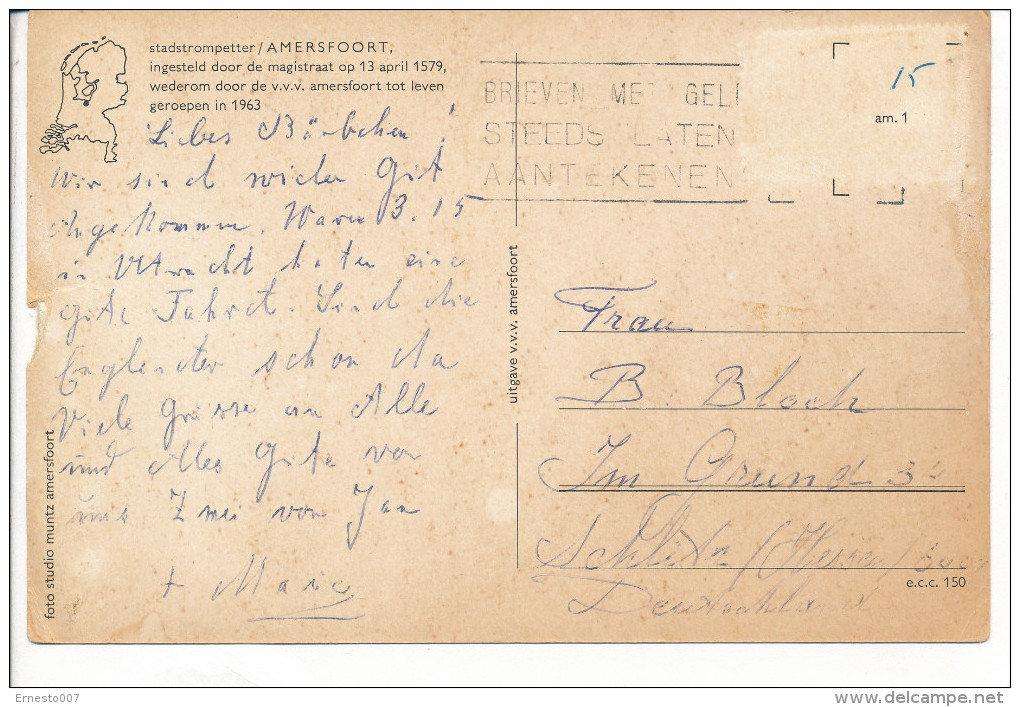 stadstrompetter / AMERSFOORT,
ingesteld door de magistraat op 13 april 1579,
wederom door de v.v.v. amersfoort tot leven
geroepen in 1963
Liebes Bärbchen!
Wir sind wieder Gut
Angekommen. Waren 3.15
in Utrecht haten eine
gute Fahrt. Sind die
Englender schon da
Viele Grüsse an Alle
und Alles Gute von
uns Zwei von Jan
+ Maria
foto studio muntz amersfoort
uitgave v.v.v. amersfoort
BRIEVEN MET GELD
STEEDS LATEN
AANTEKENEN
15
am. 1
Frau
B. Bloch
Im Grund
Schlitz (Hessen)
Deutschland
e.c.c. 150
Ernesto007
delcampe.net